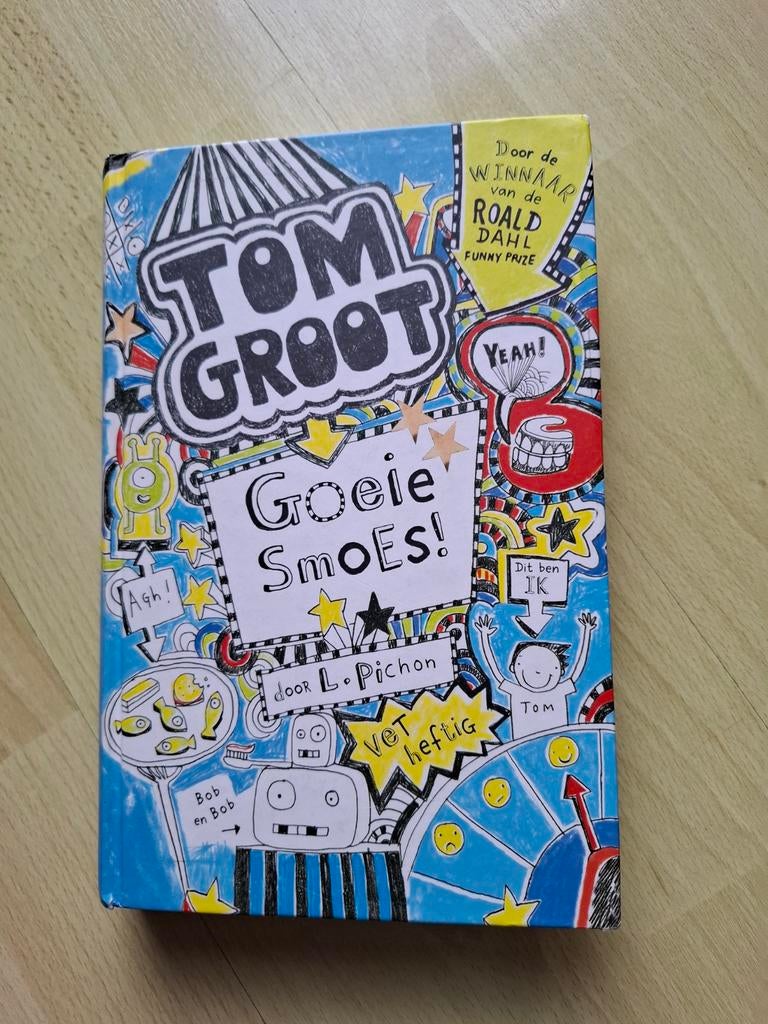 Door de
WINNAAR
van de
ROALD
DAHL
FUNNY PRIZE
TOM
GROOT
YEAH!
Goeie
SmoEs!
Dit ben
IK
AGh!
door L. Pichon
TOM
VET
heftig
Bob
en Bob